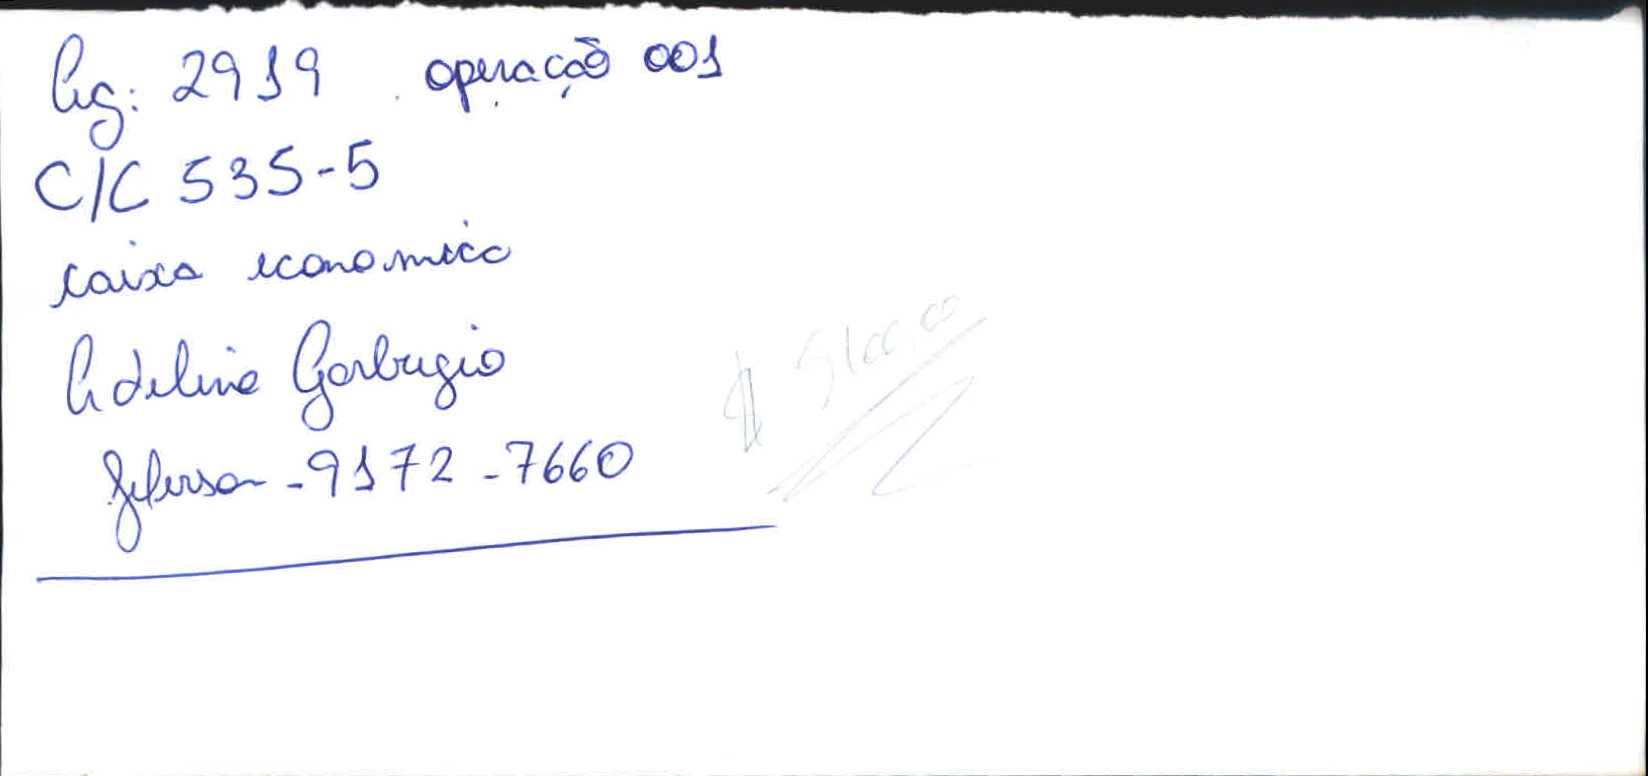 Ag: 2919 operação 001
C/C 535-5
caixa economica
Adelina Garbugio
Jeferson - 9172 - 7660